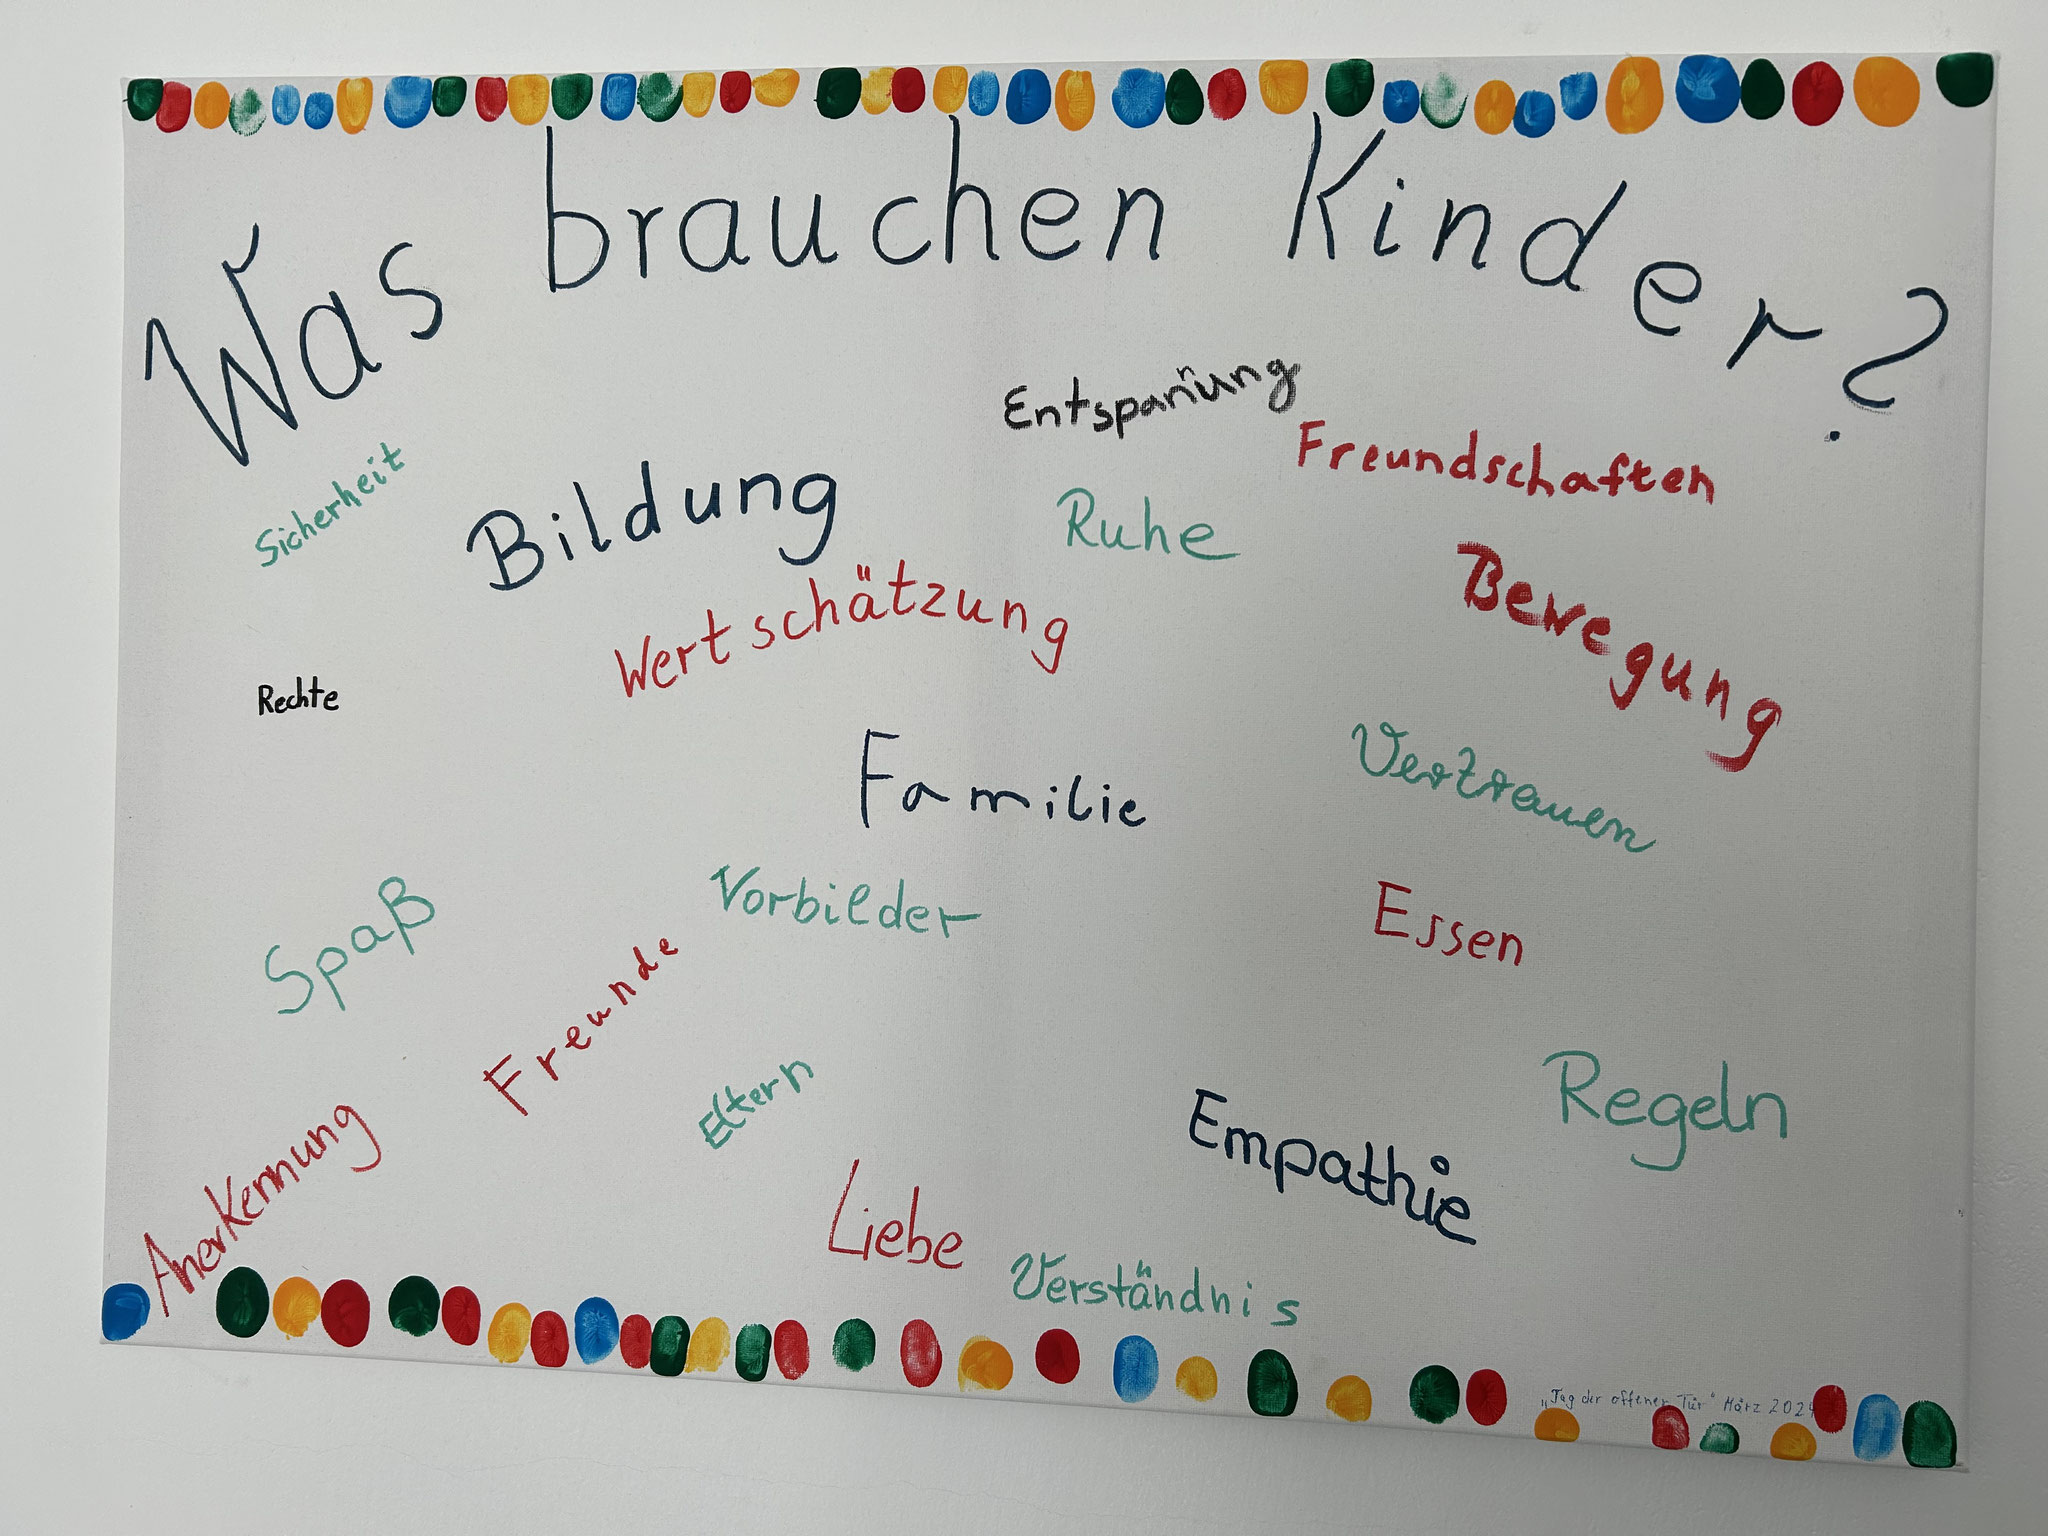 Was brauchen Kinder?
Entspannung
Freundschaften
Sicherheit
Bildung
Ruhe
Wertschätzung
Bewegung
Rechte
Familie
Vertrauen
Spaß
Vorbilder
Essen
Freunde
Eltern
Regeln
Anerkennung
Empathie
Liebe
Verständnis
„Tag der offenen Tür“ März 2024